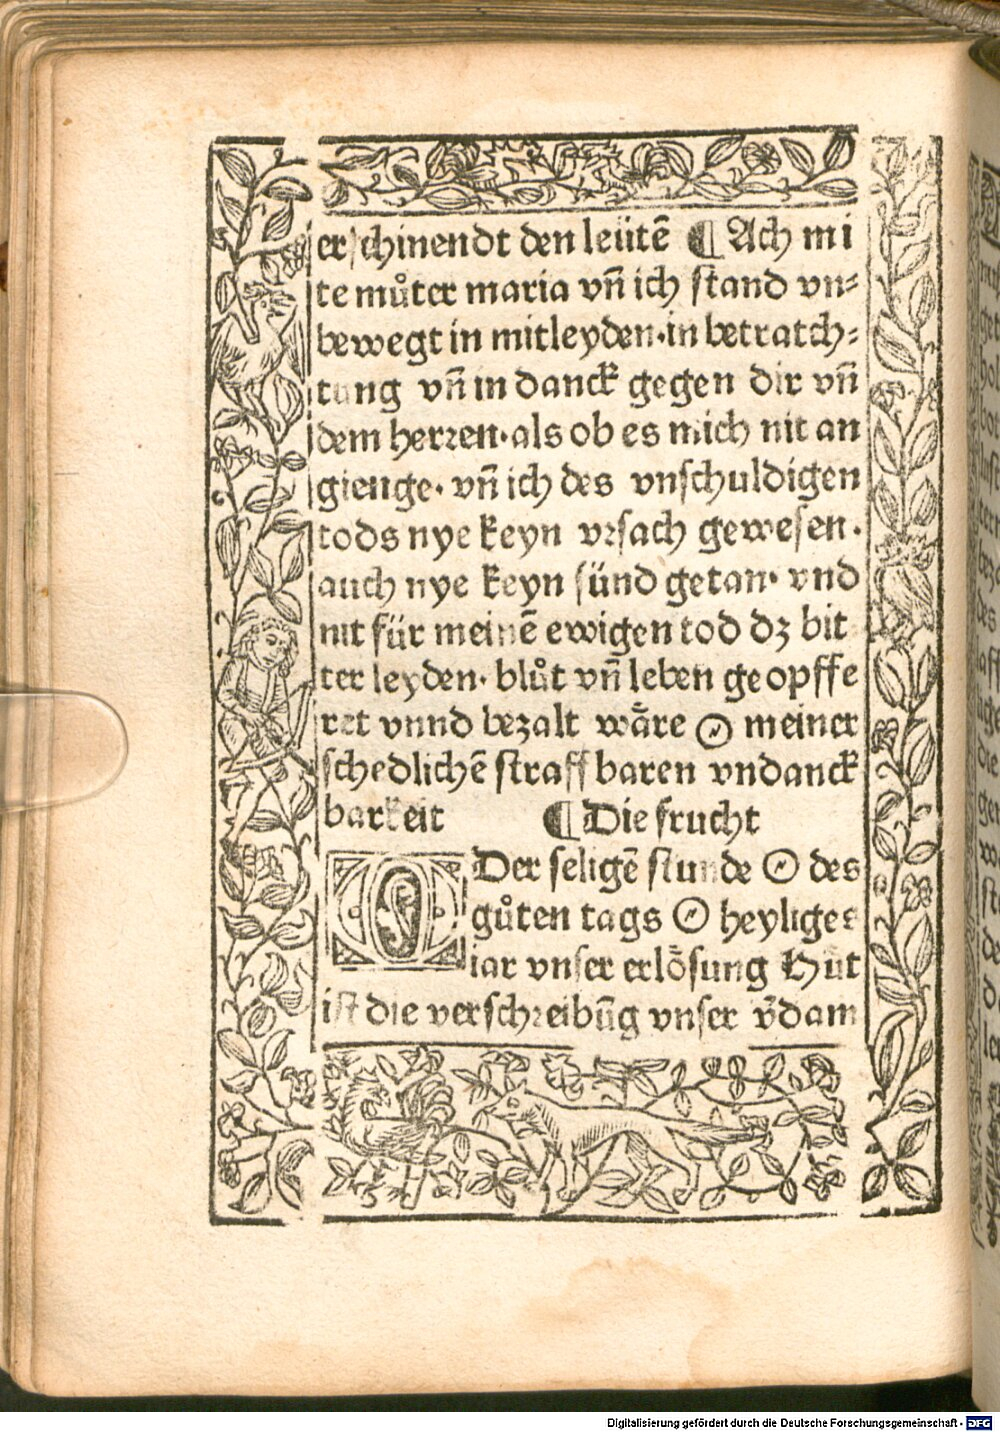 erschinendt den leütē ¶ Ach mi
te můter maria vn̄ ich stand vn⸗
bewegt in mitleyden·in betratch⸗
tung vn̄ in danck gegen dir vn̄
dem herꝛen·als ob es mich nit an
gienge· vn̄ ich des vnschuldigen
tods nye keyn vꝛsach gewesen·
auch nye keyn sünd getan· vnd
nit für meinē ewigen tod dꝫ bit
ter leyden· blůt vn̄ leben geopffe
ret vnnd bezalt wäre O meiner
schedlichē straff baren vndanck
barkeit ¶ Die frucht
O Der seligē stunde O des
gůten tags O heyliges
iar vnser erlösung Hüt
ist die verschꝛeibūg vnser v̄dam
Digitalisierung gefördert durch die Deutsche Forschungsgemeinschaft - DFG